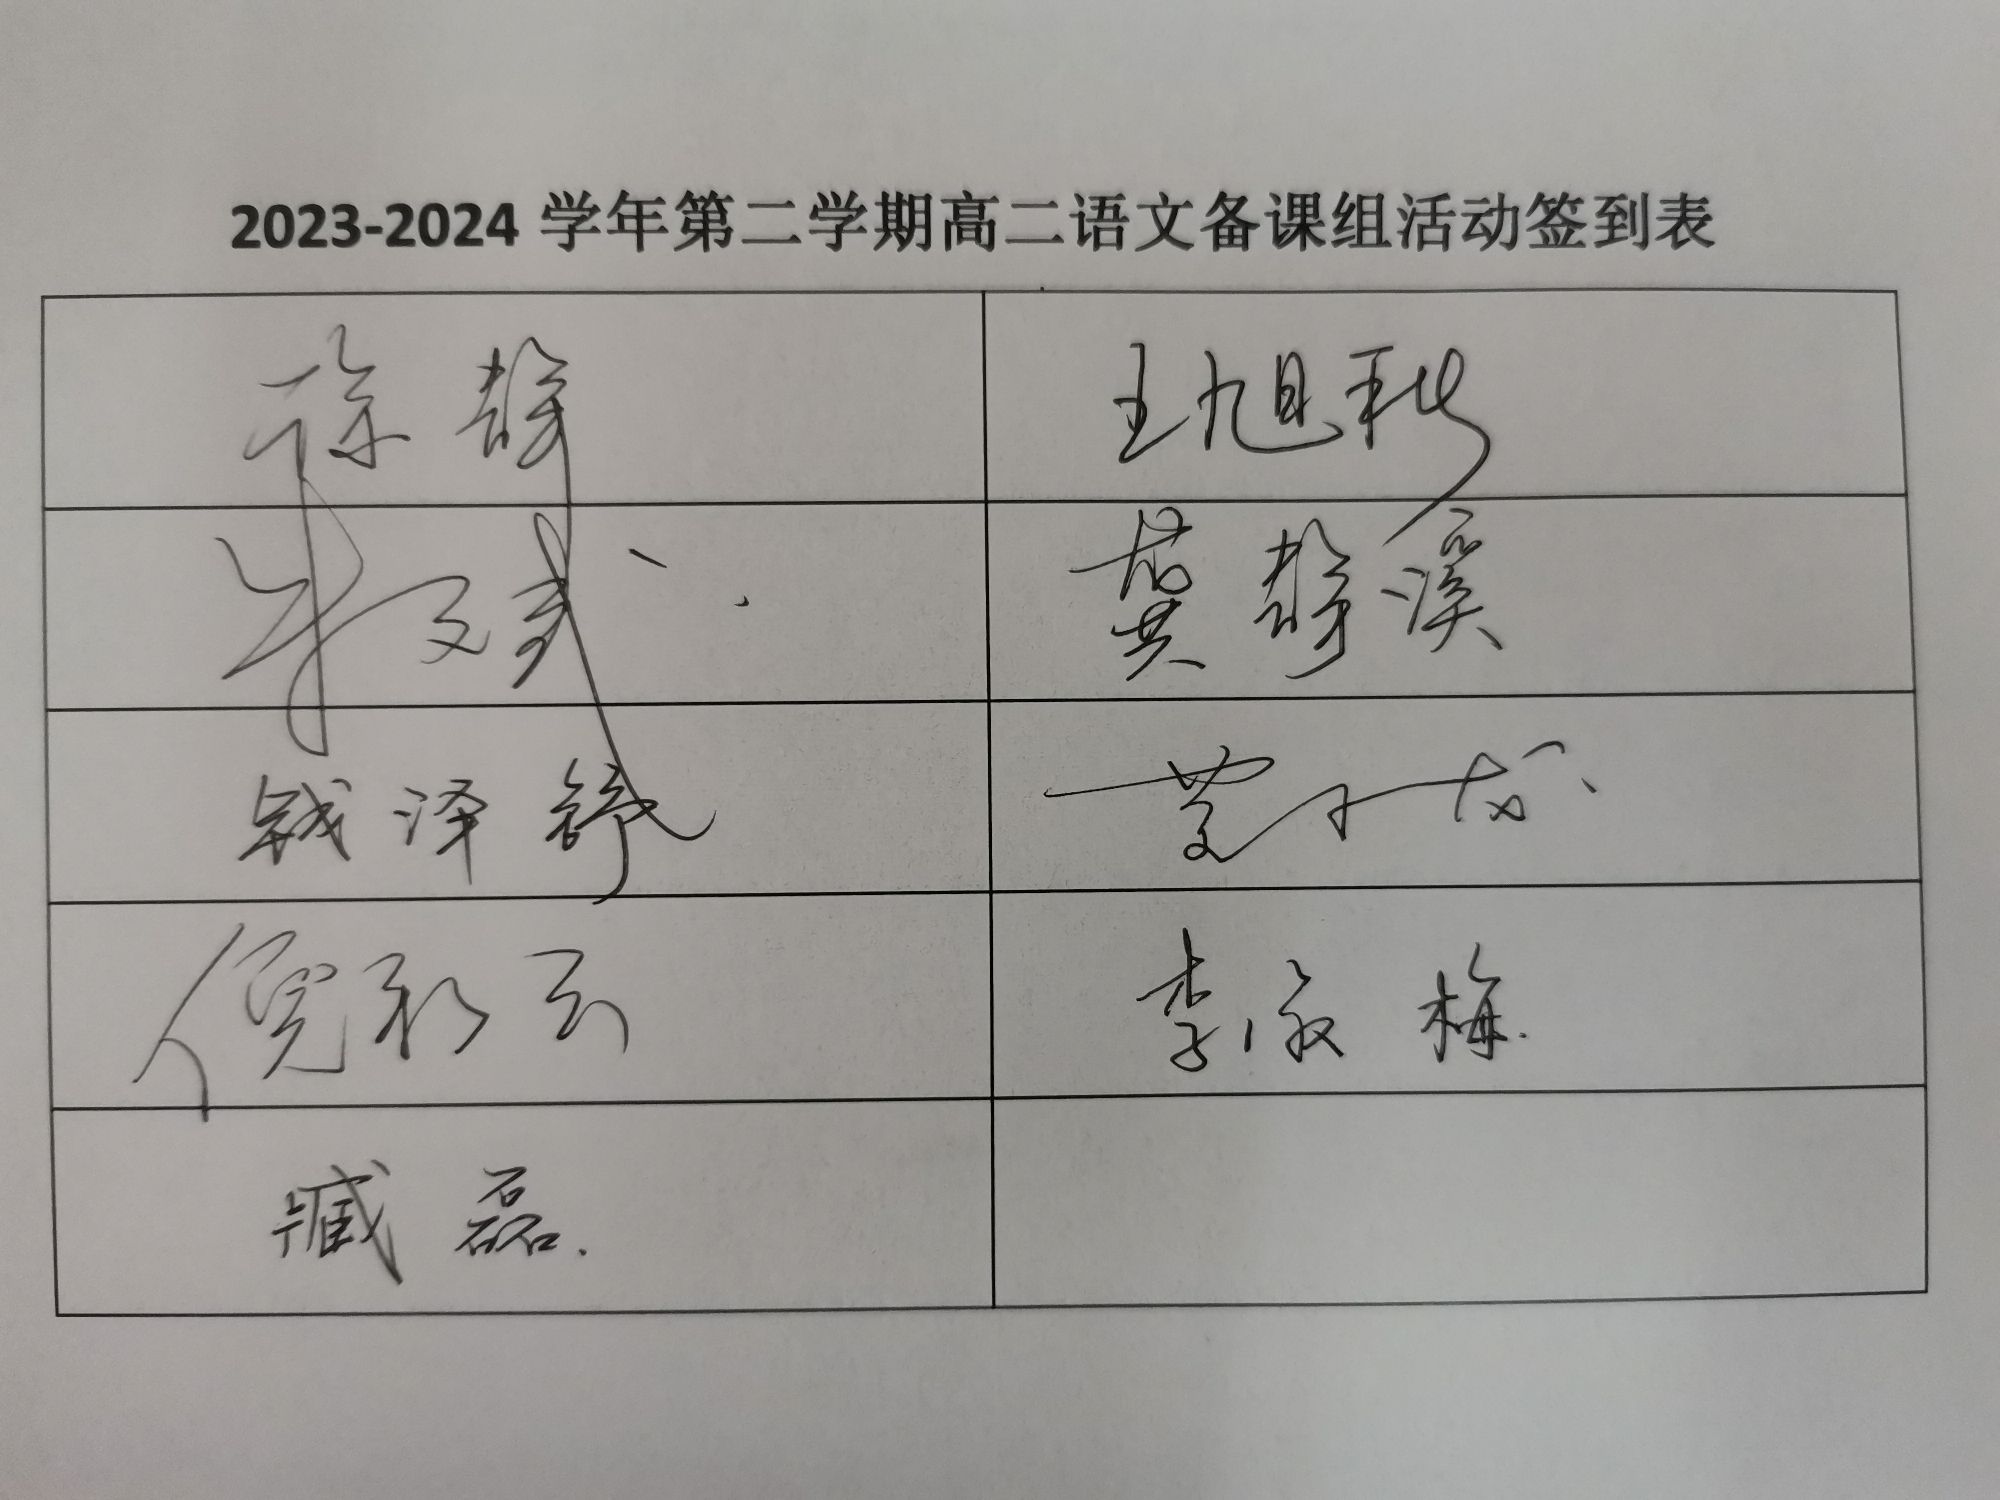 2023-2024 学年第二学期高二语文备课组活动签到表
徐静 王旭秋
龚静溪
钱泽舒
倪彩云 李淑梅
臧磊